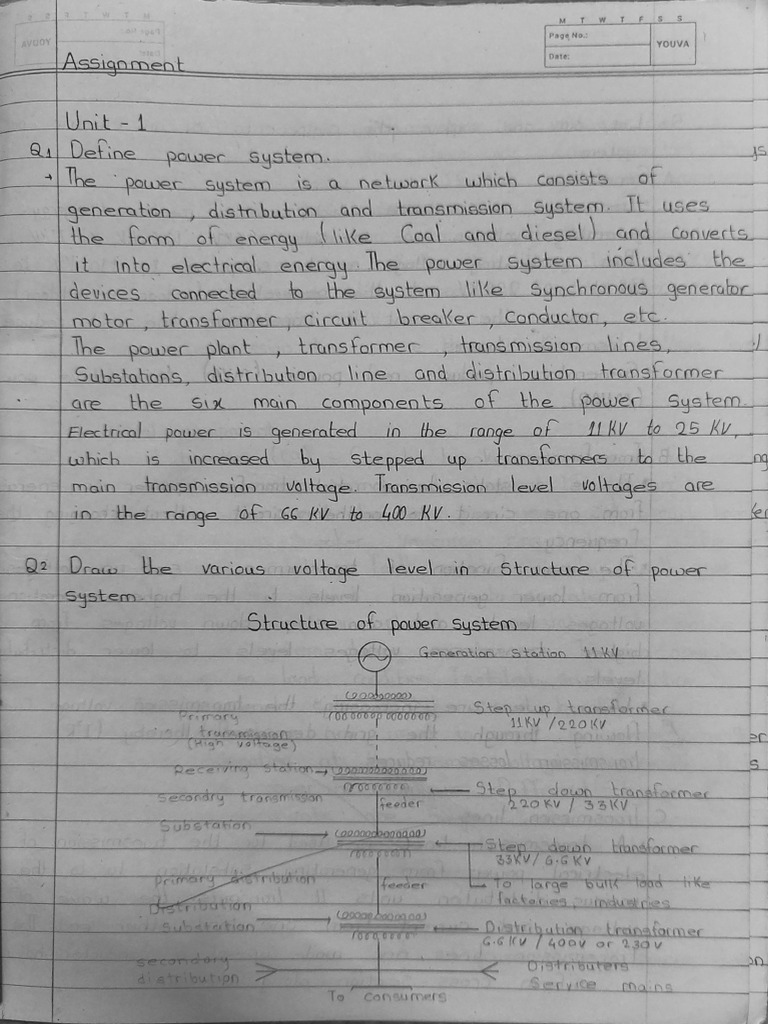 M T W T F S S
Page No.:
Date:
YOUVA
Assignment
Unit - 1
Q1 Define power system.
→ The power system is a network which consists of
generation, distribution and transmission system. It uses
the form of energy (like Coal and diesel) and converts
it into electrical energy. The power system includes the
devices connected to the system like synchronous generator
motor, transformer, circuit breaker, conductor, etc.
The power plant, transformer, transmission lines,
Substations, distribution line and distribution transformer
are the six main components of the power system
Electrical power is generated in the range of 11 KV to 25 KV,
which is increased by stepped up transformers to the
main transmission voltage. Transmission level voltages are
in the range of 66 KV to 400 KV.
Q2 Draw the various voltage level in structure of power
system.
Structure of power system
Generation station 11KV
Primary transmission (High voltage)
Step up transformer
11KV/220KV
Receiving station
Step down transformer
220KV / 33KV
Secondry transmission
feeder
Substation
Step down transformer
33KV/6.6KV
primary distribution
feeder
To large bulk load like
factories, industries
Distribution
Substaition
Distribution transformer
6.6KV / 400V or 230V
secondary
distribution
Distributers
Service mains
To consumers